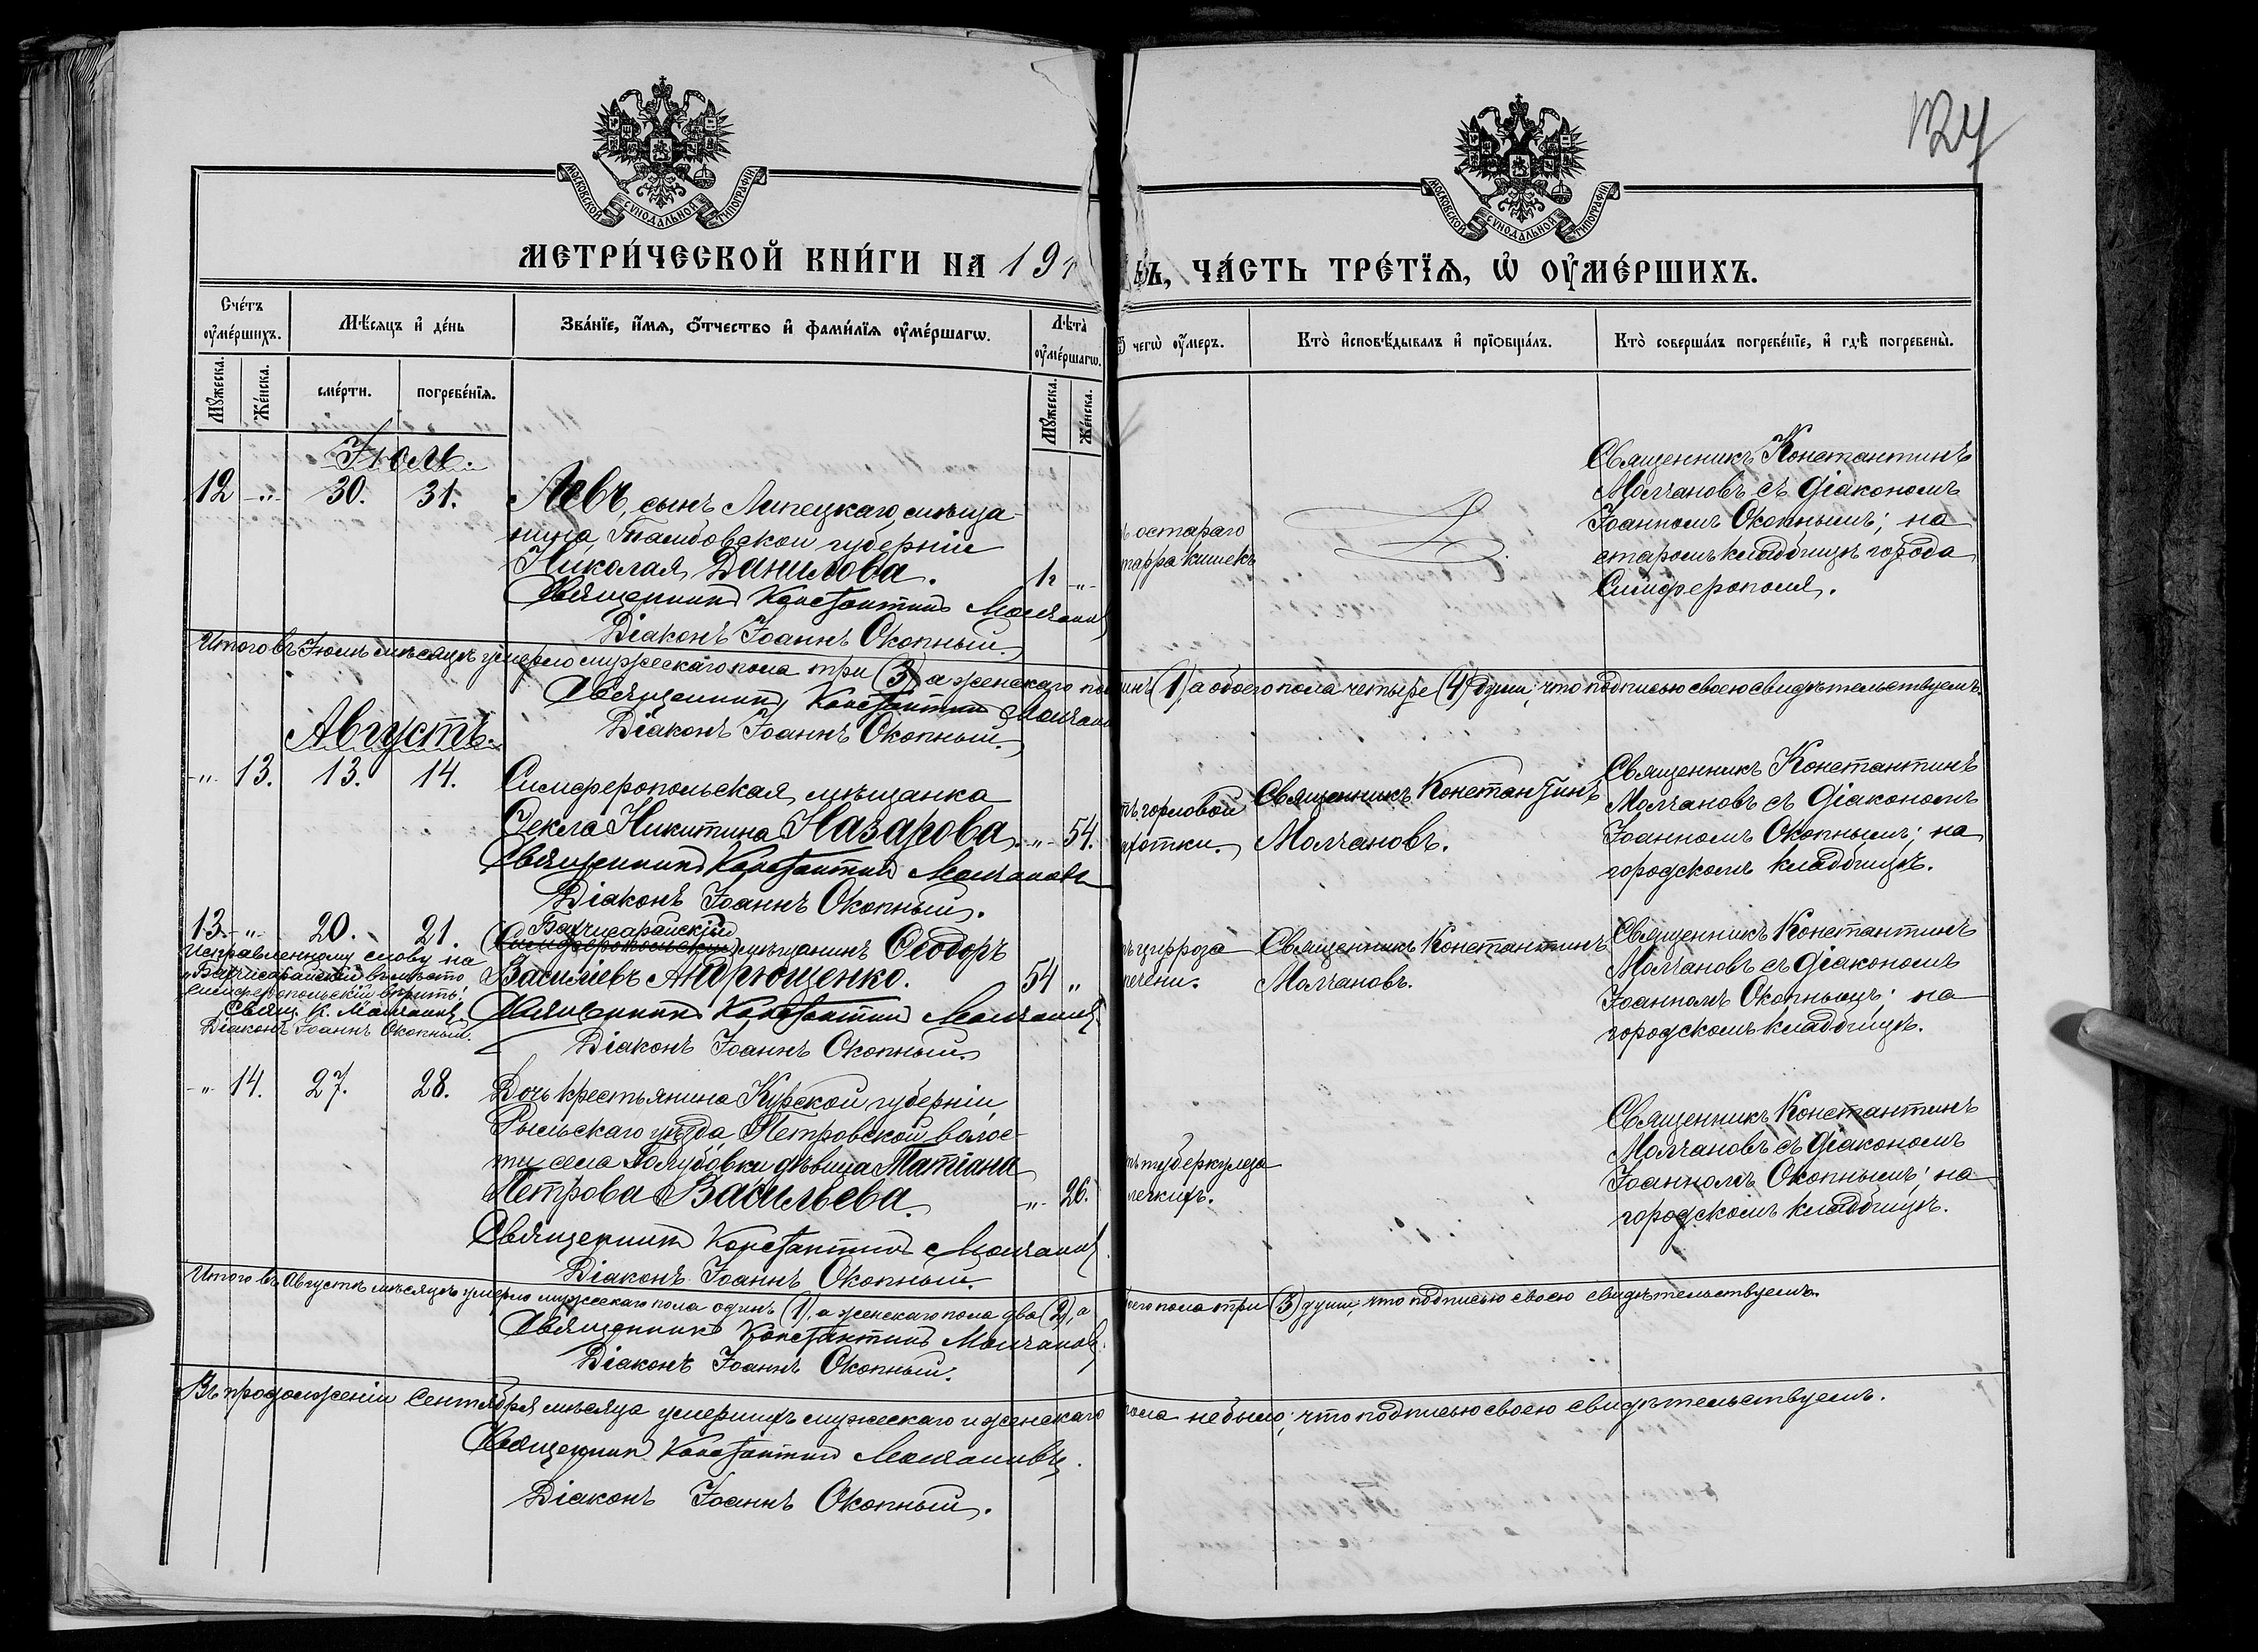 127
МОСКОВСКОЙ СУНОДАЛЬНОЙ ТИПОГРАФІИ
МОСКОВСКОЙ СУНОДАЛЬНОЙ ТИПОГРАФІИ
МЕТРИ́ЧЕСКОЙ КНИ́ГИ НА 191
ЧА́СТЬ ТРЕ́ТЇѦ, Ѡ҆ ОУ҆МЕ́РШИХЪ.
Сче́тъ оу҆ме́ршихъ.
Мꙋ́жеска.
Же́нска.
Мѣ́сѧцъ и҆ де́нь
сме́рти.
погребе́нїѧ.
Зва́нїе, и҆́мѧ, ѻ҆́тчество и҆ фами́лїѧ оу҆ме́ршагѡ.
Лѣта̀ оу҆ме́ршагѡ.
Мꙋ́жеска.
Же́нска.
чегѡ̀ оу҆́меръ.
Кто̀ и҆сповѣ́дывалъ и҆ прїѡбща́лъ.
Кто̀ соверша́лъ погребе́нїе, и҆ гдѣ̀ погребены̀.
Іюль.
12 -"- 30. 31. Левъ, сынъ Липецкаго мѣща-
нина, Тамбовской губерніи
Николая Данилова. -"-
Священникъ Константинъ Молчановъ
Діаконъ Іоаннъ Окопный.
остараго
тарра кишекъ
Священникъ Константинъ
Молчановъ съ діакономъ
Іоанномъ Окопнымъ; на
старомъ кладбищѣ города
Симферополя.
Итого въ Іюлѣ мѣсяцѣ умерло мужескаго пола три (3), а женскаго по инъ (1), а обоего пола четыре (4) души; что подписью своею свидѣтельствуемъ.
Священникъ Константинъ Молчановъ
Діаконъ Іоаннъ Окопный.
Августъ.
-"- 13. 13. 14. Симферопольская мѣщанка
Ѳекла Никитина Назарова. -"- 54.
Священникъ Константинъ Молчановъ
Діаконъ Іоаннъ Окопный.
тъ горловой
чахотки.
Священникъ Константинъ
Молчановъ.
Священникъ Константинъ
Молчановъ съ діакономъ
Іоанномъ Окопнымъ; на
городскомъ кладбищѣ.
13 -"- 20. 21. Бахчисарайскій
Симферопольскій мѣщанинъ Ѳеодоръ
Василіевъ Андрющенко. 54 "
Священникъ Константинъ Молчановъ
Діаконъ Іоаннъ Окопный.
Исправленному слову на
"Бахчисарайскій" вмѣсто
"Симферопольскій" вѣрить:
Свящ. К. Молчановъ
Діаконъ Іоаннъ Окопный.
ъ цирроза
печени.
Священникъ Константинъ
Молчановъ.
Священникъ Константинъ
Молчановъ съ діакономъ
Іоанномъ Окопнымъ; на
городскомъ кладбищѣ.
-"- 14. 27. 28. Дочь крестьянина Курской губерніи,
Рыльскаго уѣзда, Петровской волос-
ти села Голубовки дѣвица Татіана
Петрова Васильева. -"- 26.
Священникъ Константинъ Молчановъ.
Діаконъ Іоаннъ Окопный.
тъ туберкулеза
легкихъ.
Священникъ Константинъ
Молчановъ съ діакономъ
Іоанномъ Окопнымъ; на
городскомъ кладбищѣ.
Итого въ Августѣ мѣсяцѣ умерло мужескаго пола одинъ (1), а женскаго пола два (2), а оего пола три (3) души; что подписью своею свидѣтельствуемъ.
Священникъ Константинъ Молчановъ.
Діаконъ Іоаннъ Окопный.
Въ продолженіи Сентября мѣсяца умершихъ мужескаго и женскаго пола не было; что подписью своею свидѣтельствуемъ.
Священникъ Константинъ Молчановъ.
Діаконъ Іоаннъ Окопный.